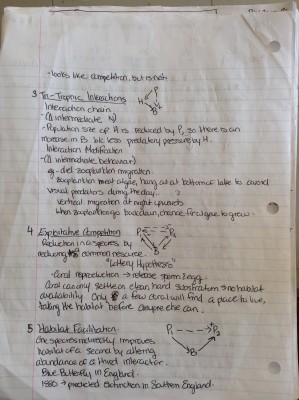 - looks like competition, but is not.
3 Tri-Trophic Interactions
Interaction chain
- (Δ intermediate N)
- Population size of H is reduced by P, so there is an
increase in B b/c less predatory pressure by H.
Interaction Modification
- (Δ intermediate behaviour)
eg. diel zooplankton migration.
zooplankton meet algae, hang out at bottom of lake to avoid
visual predators during the day.
Vertical migration at night upwards
when zooplankton go back down, chance for algae to grow.
P
H
B
4 Exploitative Competition
Reduction in a species by
reducing common resource.
P₁ P₂
B
"Lottery Hypothesis"
- Coral reproduction → release sperm & egg
Coral can only settle on clean, hard substratum → no habitat
availability. Only a few coral will find a place to live,
taking the habitat before anyone else can.
5 Habitat Facilitation
One species indirectly improves
habitat of a second by altering
abundance of a third interactor.
P₁ P₂
B
Blue Butterfly in England.
1880 → predicted extinction in Southern England.